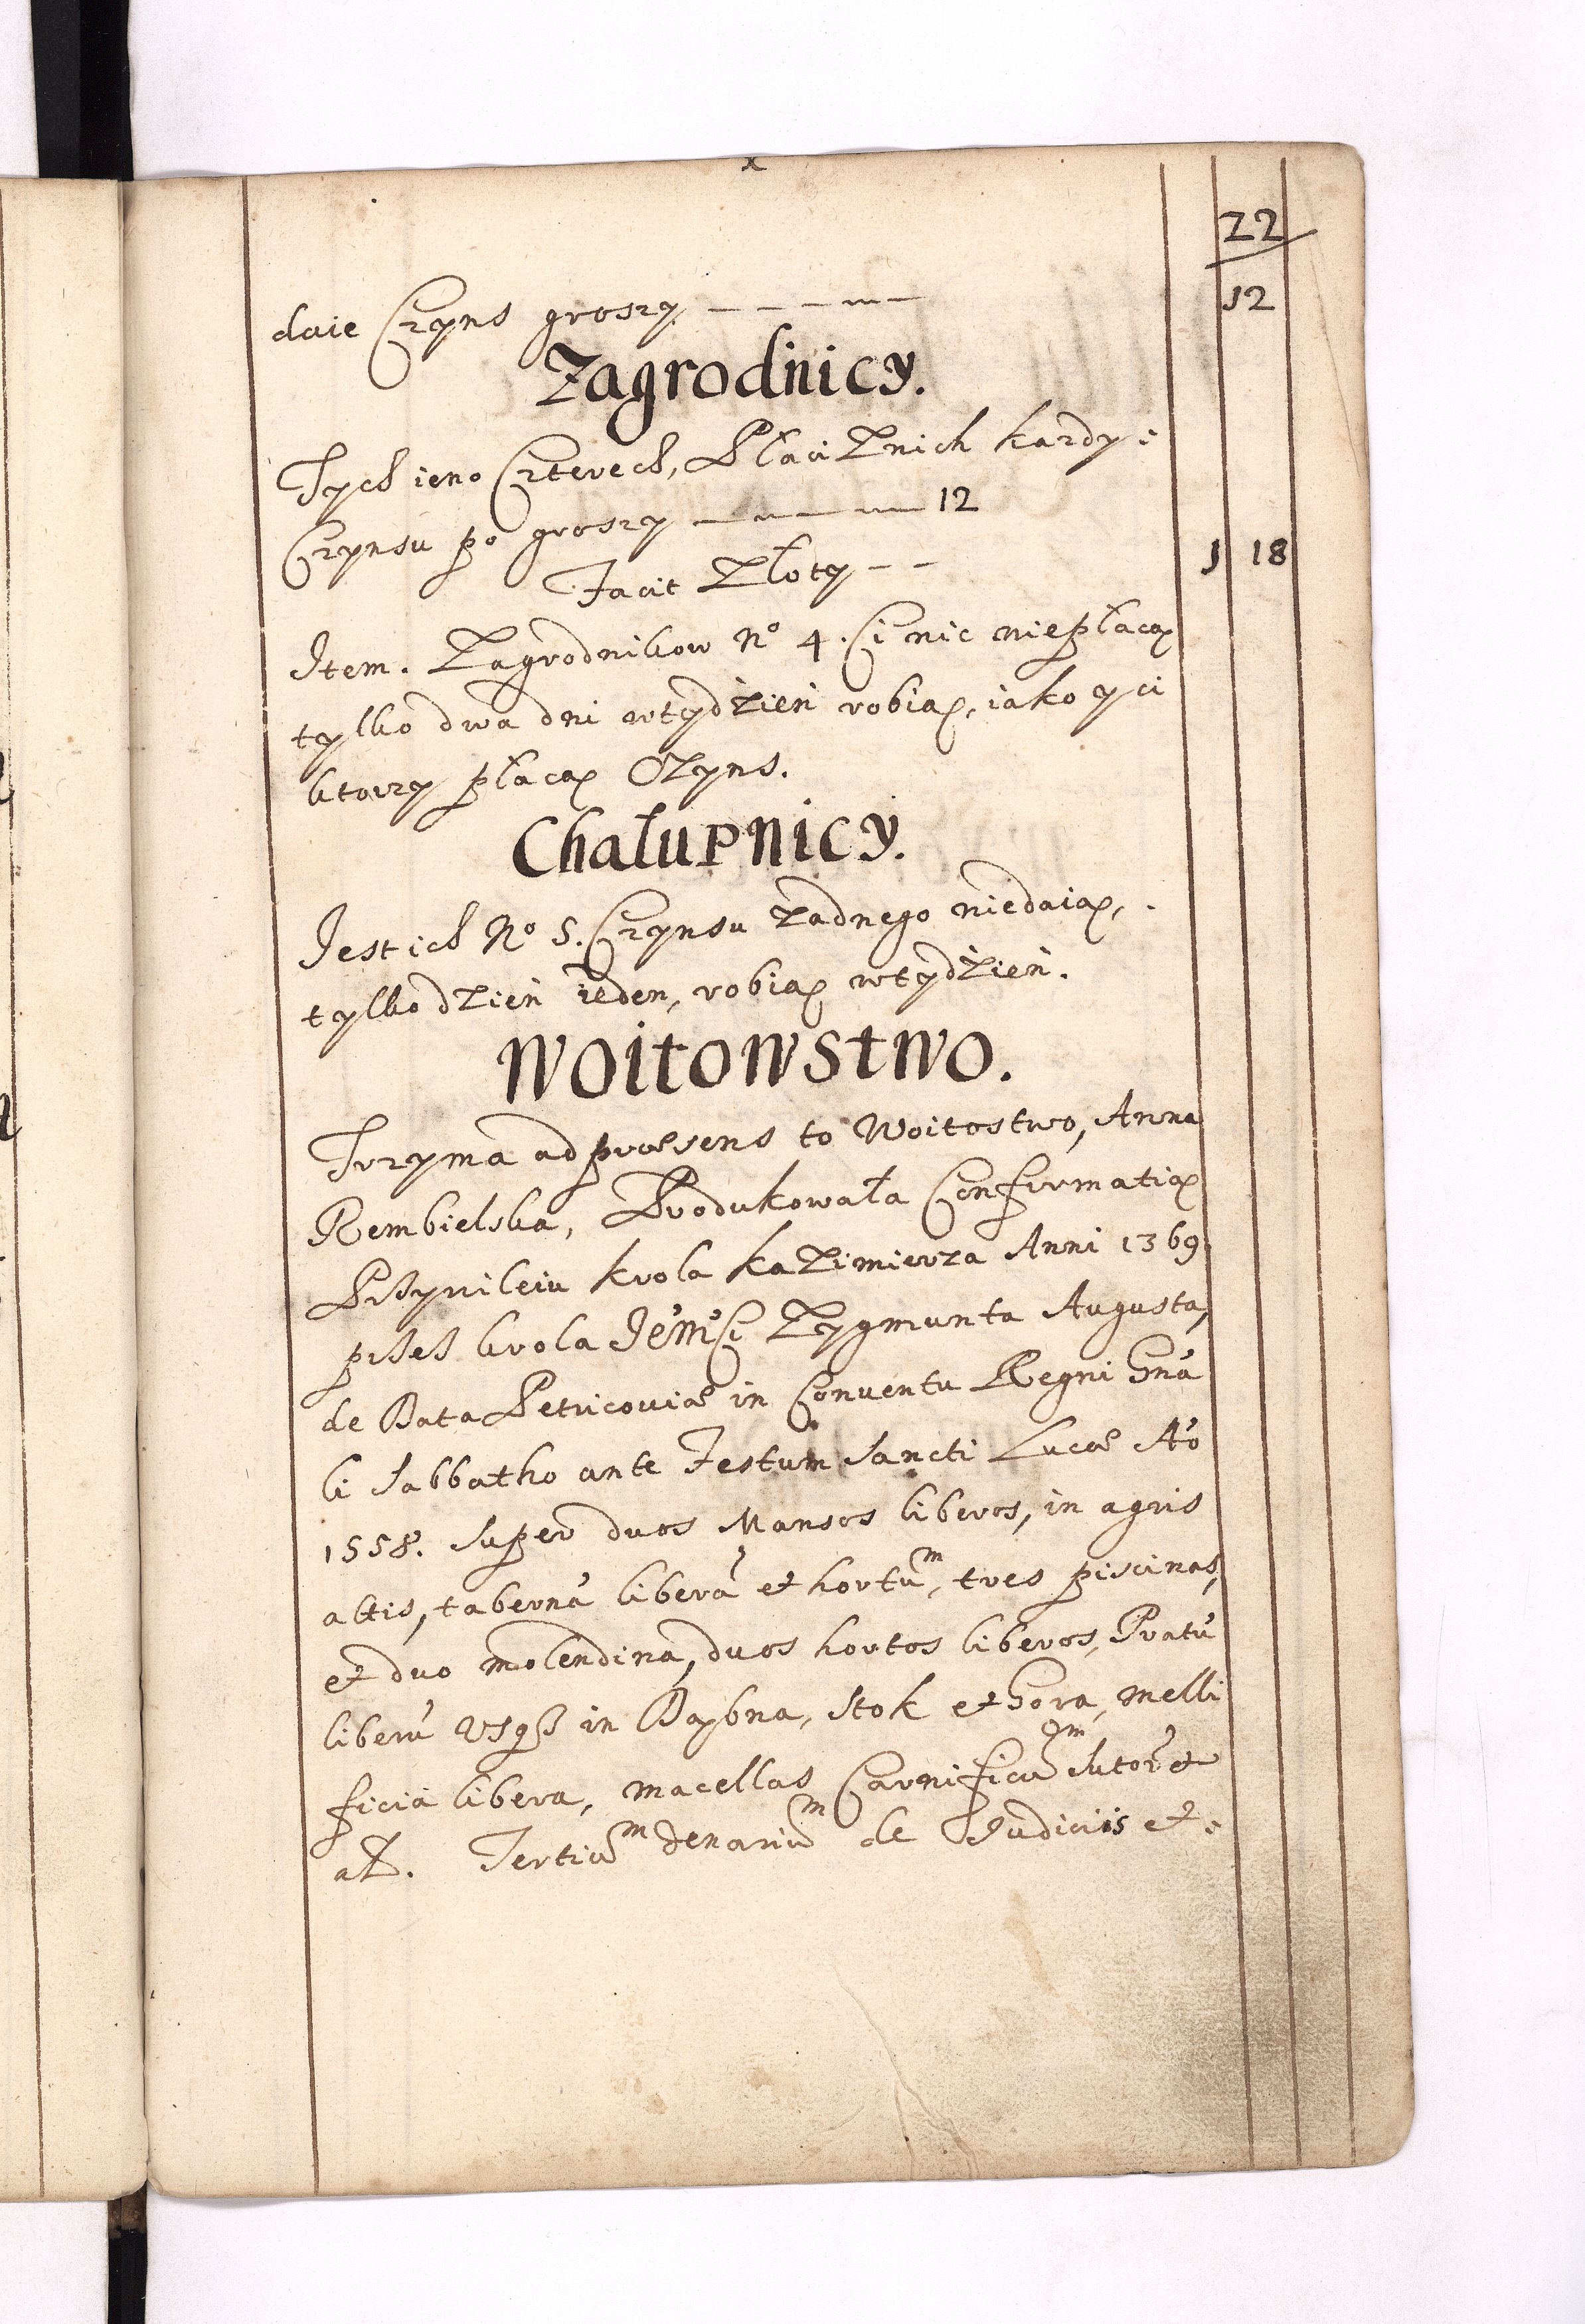 22
daie Czyns groszy – – – – – 12
Zagrodnicy.
Tych ieno Czterech, Płaci Znich kazdy :
Czynsu po groszy – – – – 12
Facit Złoty – – 1 18
Item. Zagrodnikow No 4. Ci nic niepłacą
tylko dwa dni wtydzień robią, iako y ci
ktorzy płacą Czyns.
Chałupnicy.
Jest ich No 5. Czynsu żadnego niedaią,
tylko dzień ieden, robią wtydzień.
Woitowstwo.
Trzyma ad præsens to Woitostwo, Anna
Rembielska, Produkowała Confirmatią
Przywileiu krola Kazimierza Anni 1369
przes krola Jem̃Ci Zygmunta Augusta,
de Data Petricoviæ in Conventu Regni Gnã
li Sabbatho ante Festum Sancti Lucæ Aõ
1558. Super duos Mansos liberos, in agris
altis, tabernã liberã et hortum, tres piscinas,
et duo molendina, duos hortos liberos, Pratũ
liberũ Usq3 in Dąbna, Stok et Gora, melli
ficia libera, macellas Carnificum Sutor et
al. Tertium denarium de Iudiciis et :